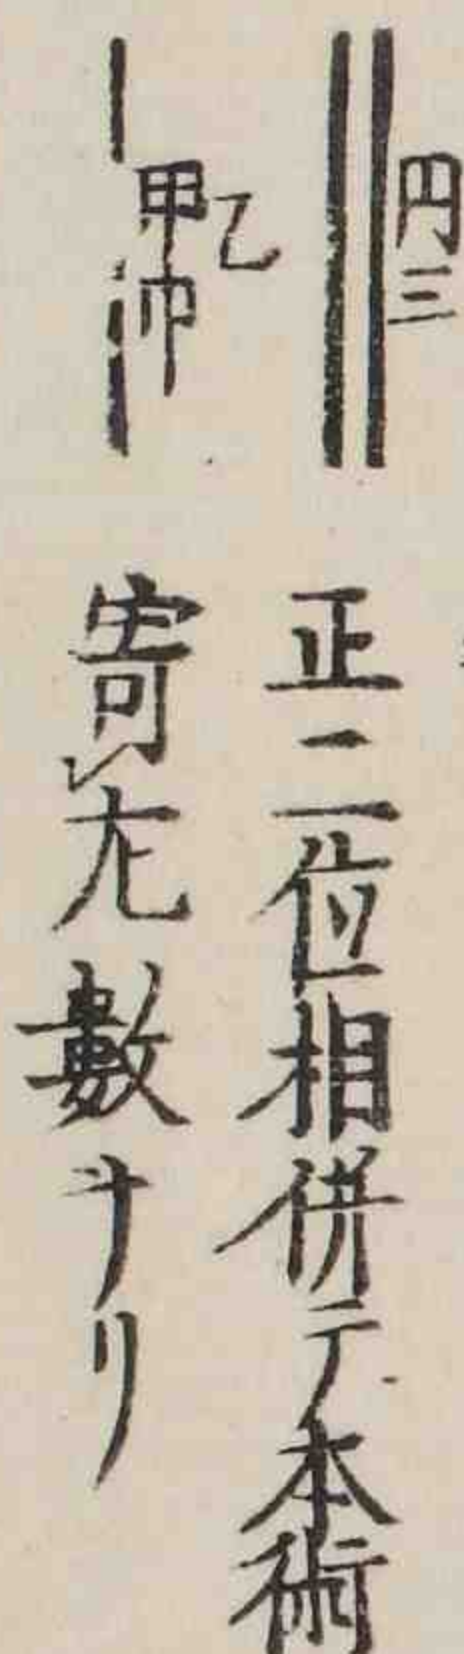 円三
正二位相併テ本術
乙
甲巾
寄㆑左數ナリ